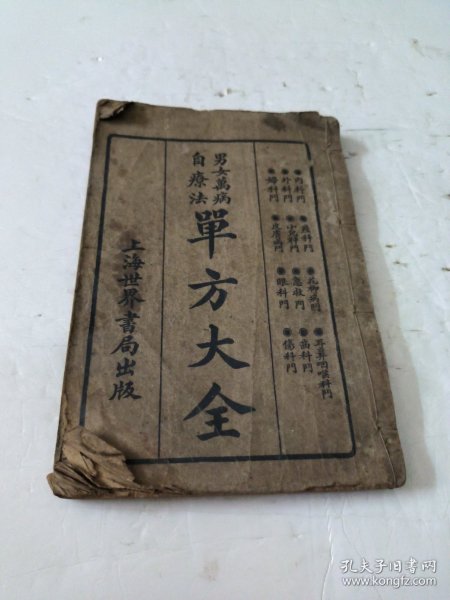 内科門
外科門
婦科門
皮膚病門
花柳病門
急救門
眼科門
耳鼻咽喉科門
齒科門
傷科門
男女萬病
自療法
單方大全
上海世界書局出版
孔夫子旧书网
www.kongfz.com